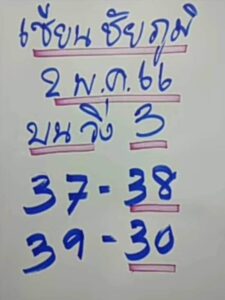 เซียน ชัยภูมิ
2 พ.ค. 66
บน วิ่ง 3
37-38
39-30